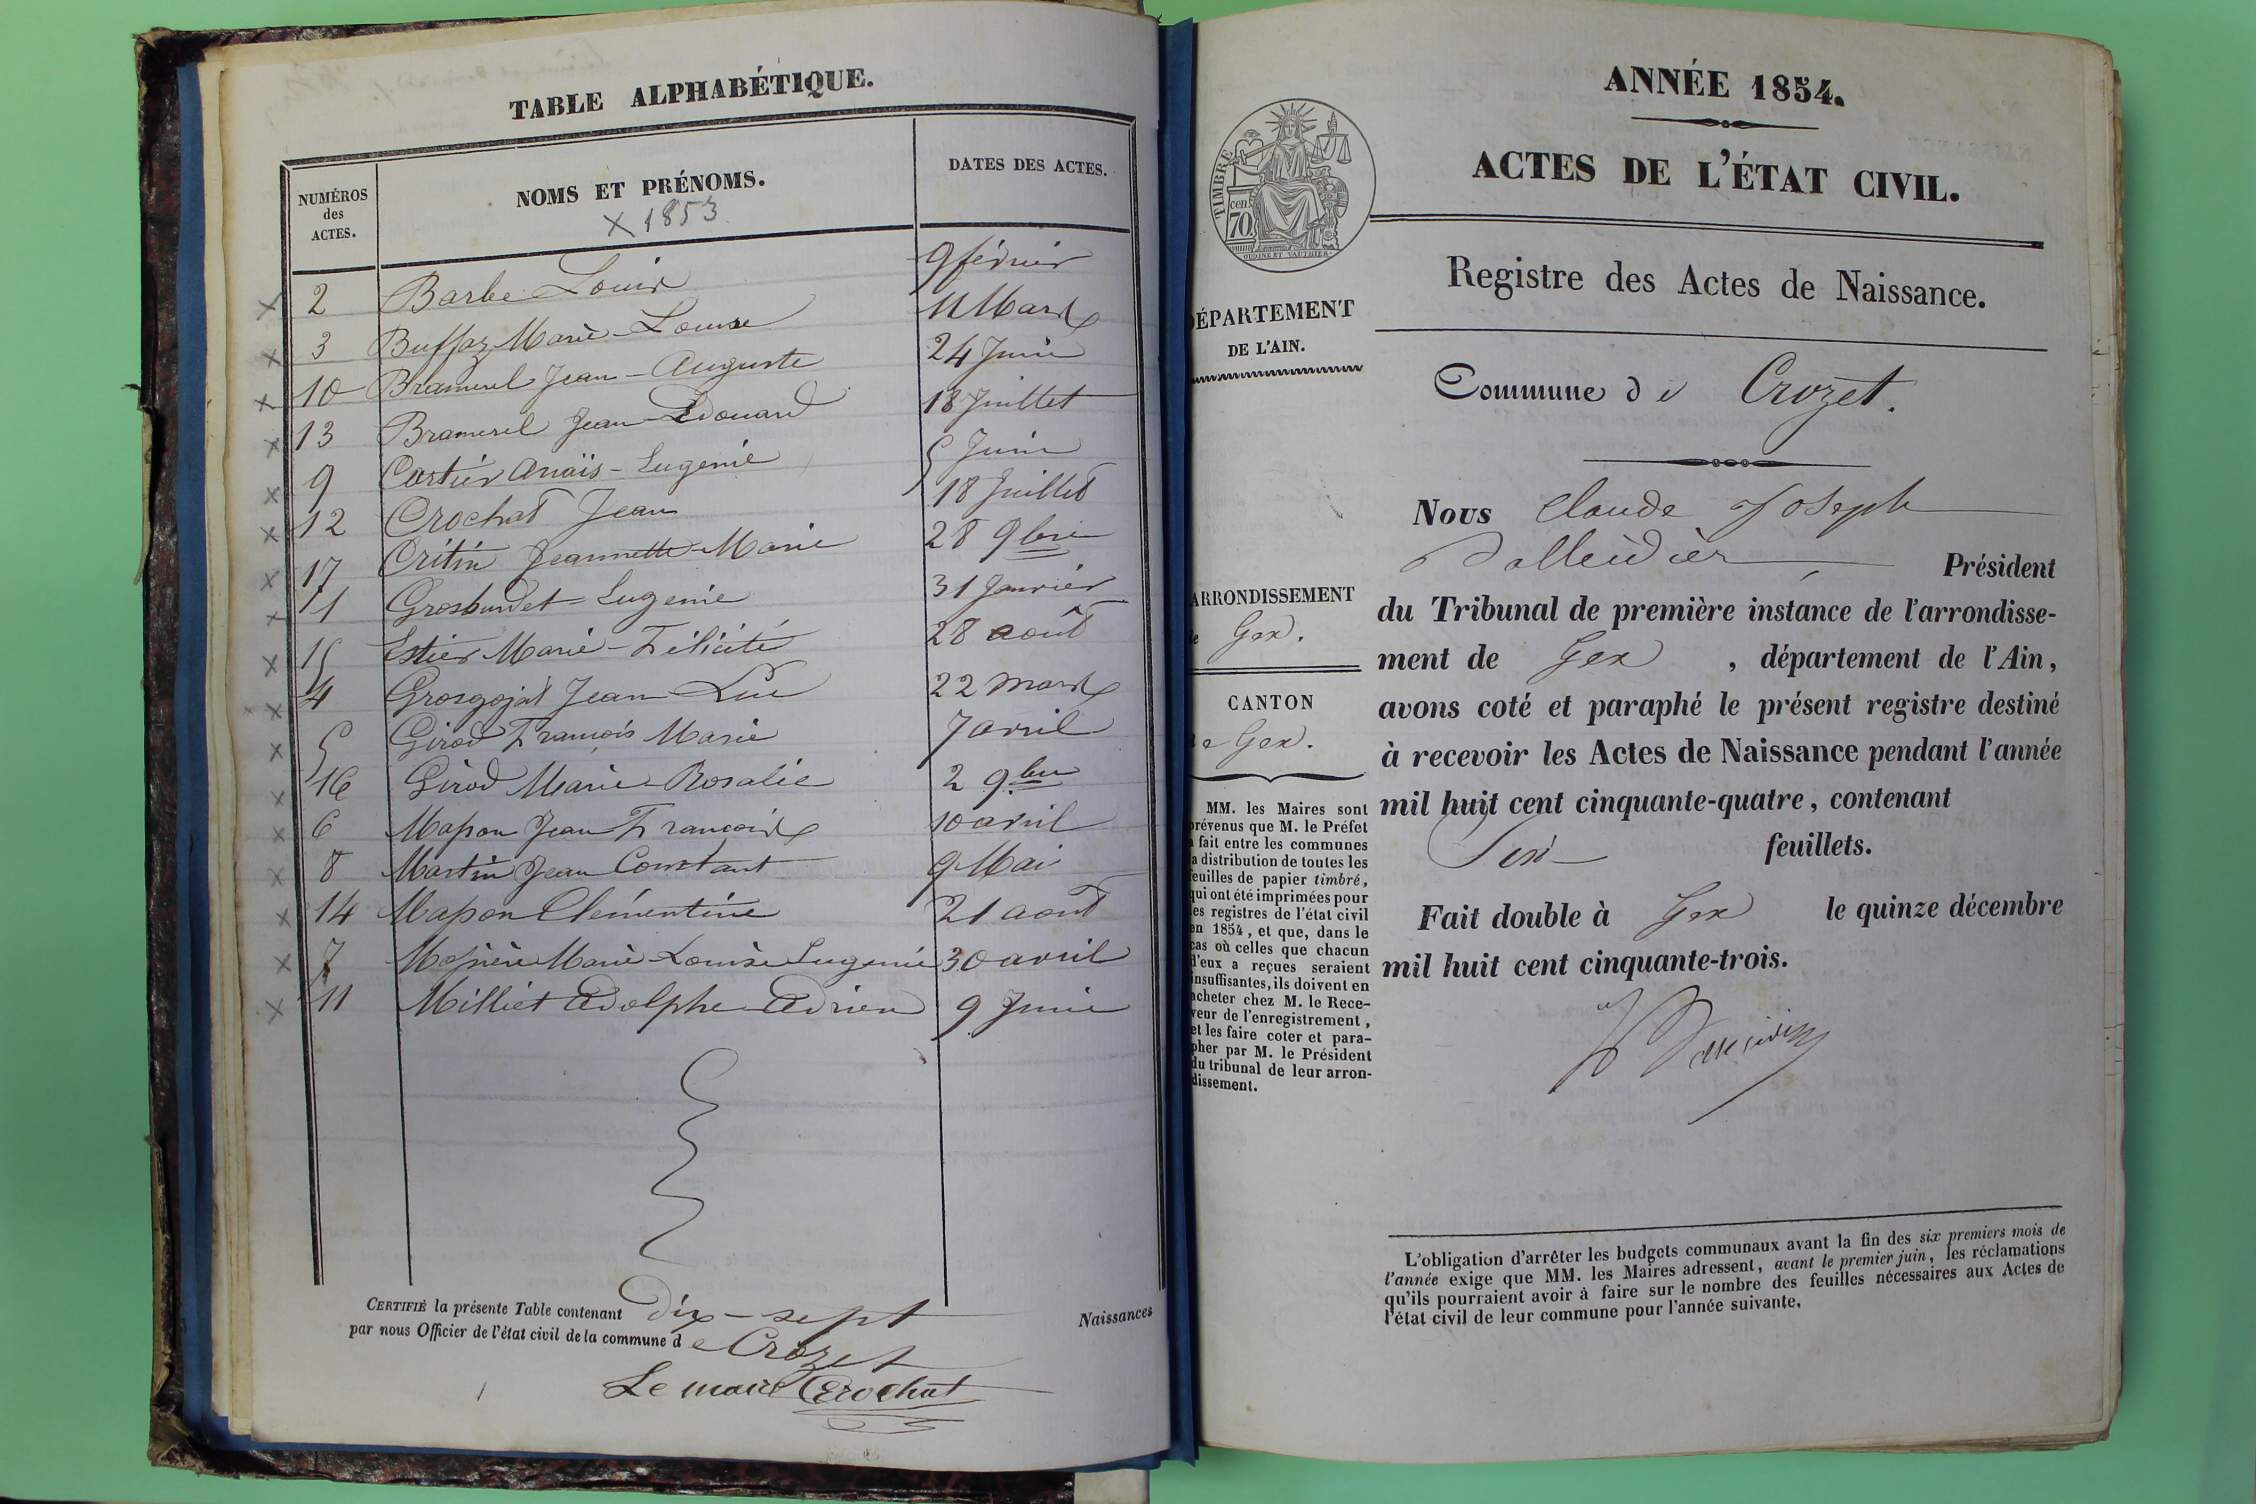 TABLE ALPHABÉTIQUE.
NUMÉROS
des
ACTES.
NOMS ET PRÉNOMS.
DATES DES ACTES.
X 1853
X 2 Barbe Louis 9 février
X 3 Buffaz Marie-Louise 11 Mars
X 10 Bramerel Jean-Auguste 24 Juin
X 13 Bramerel Jean-Edouard 18 Juillet
X 9 Cartier Anaïs-Eugénie 5 Juin
X 12 Crochat Jean 18 Juillet
X 17 Critin Jeannette-Marie 28 9bre
X 1 Eugenie 31 Janvier
X 15 Estier Marie-Félicité 28 août
X 4 Grosgojat Jean-Luc 22 mars
X 5 Girod François Marie 7 avril
X 16 Girod Marie-Rosalie 2 9bre
X 6 Masson Jean François 10 avril
X 8 Martin Jean Constant 9 Mai
X 14 Masson Clémentine 21 août
X 7 Marie-Louise Eugénie 30 avril
X 11 Milliet Adolphe-Adrien 9 Juin
CERTIFIÉ la présente Table contenant Dix-sept Naissances
par nous Officier de l'état civil de la commune de Crozet
Le maire Crochat
ANNÉE 1854.
ACTES DE L'ÉTAT CIVIL.
TIMBRE
cen.
70
OUDINE ET VAUTHIER
Registre des Actes de Naissance.
DÉPARTEMENT
DE L'AIN.
Commune de Crozet.
Nous Claude Joseph
Président
du Tribunal de première instance de l'arrondisse-
ment de Gex, département de l'Ain,
avons coté et paraphé le présent registre destiné
à recevoir les Actes de Naissance pendant l'année
mil huit cent cinquante-quatre, contenant
Six feuillets.
Fait double à Gex le quinze décembre
mil huit cent cinquante-trois.
ARRONDISSEMENT
de Gex.
CANTON
de Gex.
MM. les Maires sont
prévenus que M. le Préfet
a fait entre les communes
la distribution de toutes les
feuilles de papier timbré,
qui ont été imprimées pour
les registres de l'état civil
en 1854, et que, dans le
cas où celles que chacun
d'eux a reçues seraient
insuffisantes, ils doivent en
acheter chez M. le Rece-
veur de l'enregistrement,
et les faire coter et para-
pher par M. le Président
du tribunal de leur arron-
dissement.
L'obligation d'arrêter les budgets communaux avant la fin des six premiers mois de
l'année exige que MM. les Maires adressent, avant le premier juin, les réclamations
qu'ils pourraient avoir à faire sur le nombre des feuilles nécessaires aux Actes de
l'état civil de leur commune pour l'année suivante.